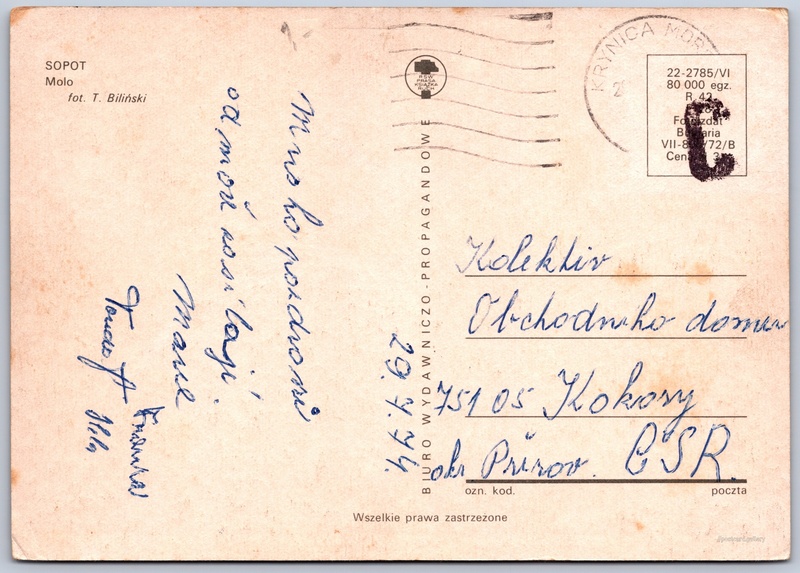 SOPOT
Molo
fot. T. Biliński
Mnoho pozdravů
od moře zasílají
Marie
29.7.74.
RSW
PRASA
KSIĄŻKA
RUCH
BIURO WYDAWNICZO-PROPAGANDOWE
KRYNICA MOR
22-2785/VI
80 000 egz.
R 42
Bułgaria
VII-8 /72/B
Cena
Kolektiv
Obchodního domu
751 05 Kokory
okr Přerov. ČSR.
ozn. kod. poczta
Wszelkie prawa zastrzeżone